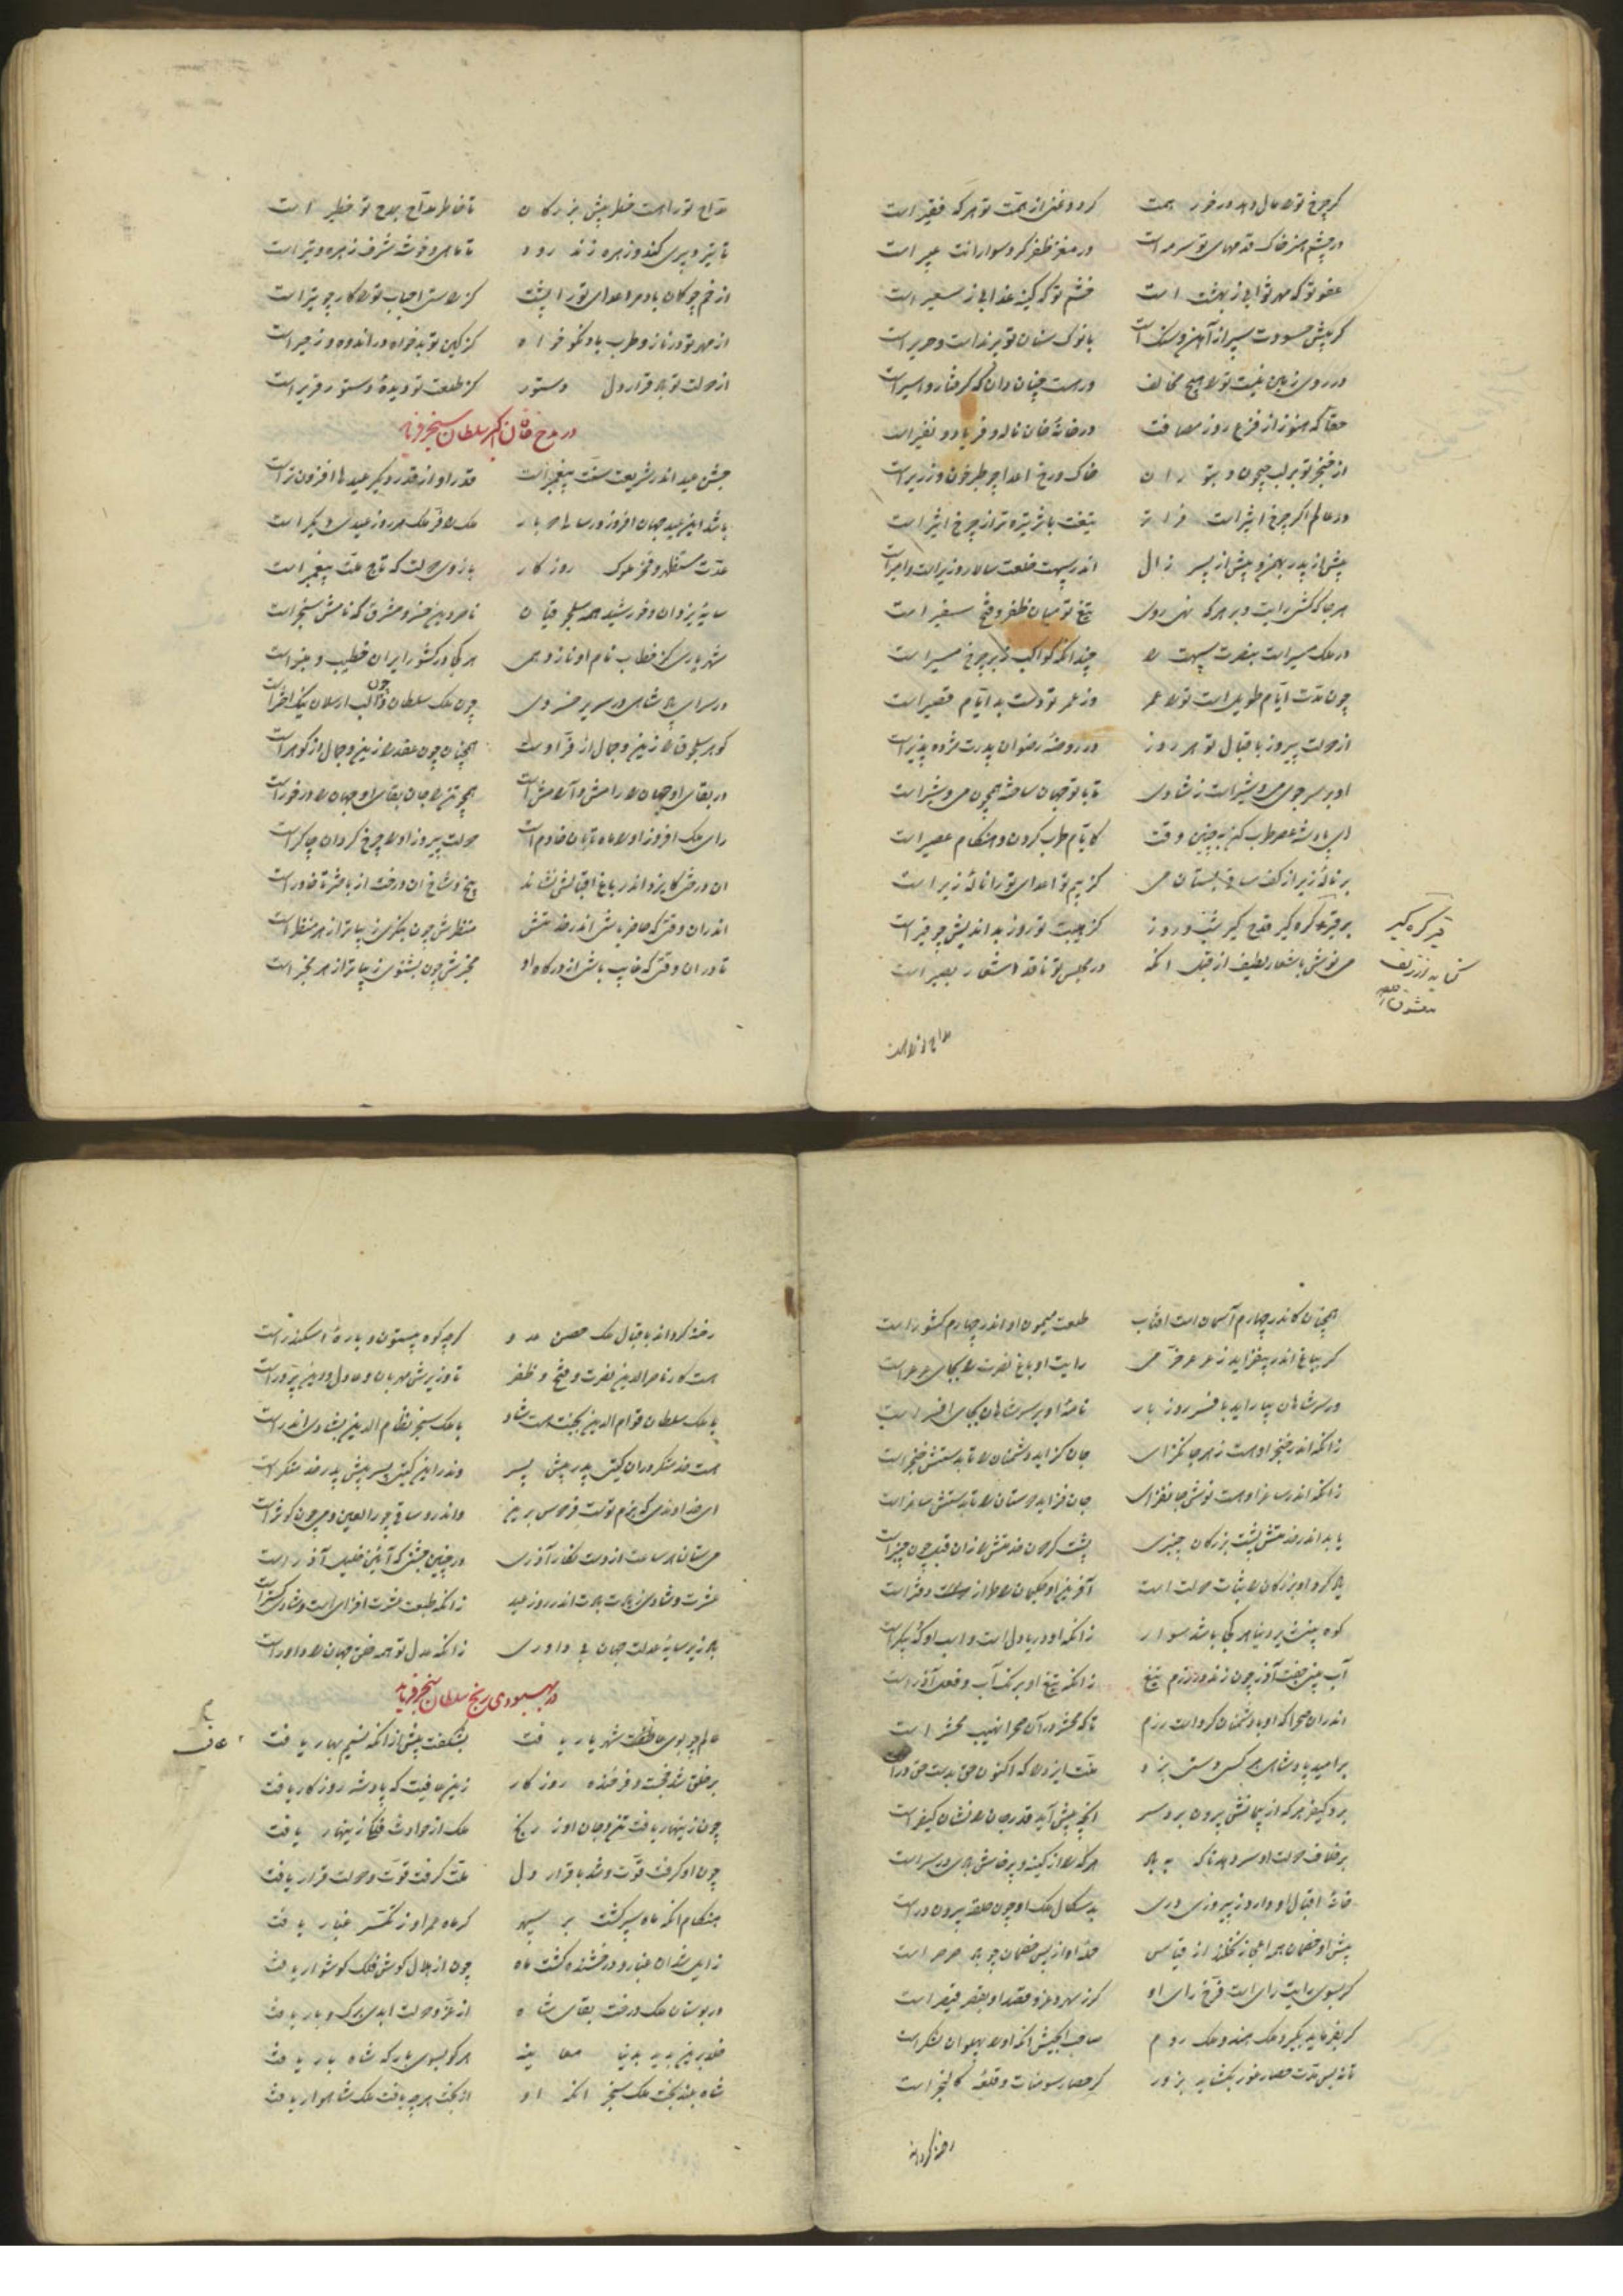 گر چرخ تو را مال دهد درخور همت گردد غنی از همت تو هر که فقیر است
در چشم هنر خاک قدمهای تو سرمه است در مغز ظفر گرد سوارانت عبیر است
عفو تو که مهر ثوابی ز بهشت است خشم تو که کینه عذابی ز سعیر است
گر پیش حسودت سپر از آهن و سنگ است با نوک سنان تو پرند است و حریر است
در روی زمین نیست تو را هیچ مخالف ور هست چنان دان که گرفتار و اسیر است
حقا که هنوز از فزع روز مصافت در خانه خان ناله و فریاد و نفیر است
از خنجر تو بر لب جیحون و بتوران خاک و رخ اعدا چو طبرخون و زریر است
در عالم اگر چرخ اثیر است تیغت باثر تیزتر از چرخ اثیر است
پیش از پدر بهمن و پیش از پسر زال اندر سپهت خلعت سالار و وزیر است و امیر است
هر جا که کشی رایت و بر هر که نهی روی تیغ تو میان ظفر و فتح سفیر است
در ملک مسیر است بنصرت سپهت را چندانکه کواکب را بر چرخ مسیر است
چون مدت ایام طویل است تو را عمر وز عمر تو دست بد ایام قصیر است
از دولت پیروز باقبال تو هر روز در روضه رضوان پدرت مژده پذیر است
او بر سر جوی می و شیر است ز شادی تا با تو جهان ساخته چون می و شیر است
ای پادشه عصر طرب کن به چنین وقت کایام طرب کردن و هنگام عصیر است
بر ناله زیر از کف ساقی بستان می کز بیم تو اعدای تو را ناله زیر است
بر قیر گره گیر قدح گیر شب و روز کز هیبت تو روز بداندیش چو قیر است
می نوش باشعار لطیف از قبل آنکه در مجلس تو ناقد اشعار بصیر است
قیر گره گیر
کنایه از زلف
معشوق است
مداح تو را هست
مداح تو را هست خطر پیش بزرگان تا خاطر مداح بمدح تو خطیر است
تا تیر دبیری کند و زهره زند رود تا ماهی و خوشه شرف زهره و تیر است
از خم چو کمان باد مر اعدای تو را پشت کز راستی احباب تو را کار چو تیر است
از مهر تو در ناز و طرب باد نکوخواه کز کین تو بدخواه در اندوه و زحیر است
از دولت تو باد قرار دل دستور کز طلعت تو دیده دستور قریر است
در مدح خاقان اکبر سلطان سنجر فرماید
جشن عید اندر شریعت سنت پیغمبر است قدر او از قدر دیگر عیدها افزون‌تر است
باشد این عید جهان افروز در سالی دو بار ملک را فر ملک هر روز عیدی دیگر است
عدت مستظهر و فخر ملوک روزگار بازوی دولت که تاج ملت پیغمبر است
سایه یزدان و خورشید همه سلجوقیان ناصر دین خسرو مشرق که نامش سنجر است
شهریاری کز خطاب نام او نازد همی هر کجا در کشور ایران خطیب و منبر است
در سرای پادشاهی در سریر خسروی چون ملک سلطان و چون الب ارسلان نیک اختر است
گوهر سلجوق را زین و جمال از فر اوست همچنان چون عقد را زین و جمال از گوهر است
در بقای او جهان را رامش و آرامش است همچو تن را جان بقای او جهان را درخور است
رای ملک افروز او را ماه تابان خادم است دولت پیروز او را چرخ گردان چاکر است
آن درختی کایزد اندر باغ اقبالش نشاند بیخ و شاخ آن درخت از باختر تا خاور است
اندر آن وقتی که حاضر باشی اندر خدمتش منظرش چون بنگری زیباتر از هر منظر است
تا در آن وقتی که غایب باشی از درگاه او مخبرش چون بشنوی زیباتر از هر مخبر است
همچنان کاندر چهارم آسمان است آفتاب طلعت میمون او اندر چهارم کشور است
گر بباغ اندر بیفزاید ز عرعر خرمی رایت او باغ نصرت را بجای عرعر است
ور سر شاهان بیاراید بافسر روز بار نامه او بر سر شاهان بجای افسر است
زانکه اندر خنجر او هست زهر جانگزای جان گزاید دشمنان را تا بدستش خنجر است
زانکه اندر ساغر او هست نوش جانفزای جان فزاید دوستان را تا بدستش ساغر است
باید اندر خدمتش پشت بزرگان چنبری پشت گردون خدمتش را زان قبل چون چنبر است
یاد کرد او بزرگان را ثبات دولت است آفرین او حکیمان را طراز دفتر است
کوه بینی زیر دریا هر کجا باشد سوار زانکه او دریادل است و اسب او که پیکر است
آب بینی جفت آذر چون زند در رزم تیغ زانکه تیغ او برنگ آب و فعل آذر است
اندر آن صحرا که او با دشمنان کرده است رزم تا که محشر در آن صحرا نهیب محشر است
بر امید پادشاهی هر کسی دستی بزد منت ایزد را که اکنون حق بدست حق‌ور است
برد کیفر هر که از پیمانش بیرون برد سر آنچه پیش آید قدر خان را نشان کیفر است
بر خلاف دولت او سر دهد ناگه به باد هر که را از کینه و پرخاش بادی در سر است
خانه اقبال او دارد ز پیروزی دری بدسگال ملک او چون حلقه بیرون در است
پیش او خصمان همه اعجاز نخلند از قیاس حمله او از پس خصمان چو باد صرصر است
گر بسوی رایت رای است فرخ رای او گر ز بهر و عز و قصد او بقصر قیصر است
گر بفرماید بگیرد ملک هند و ملک روم صاحب الجیش آنکه او را پهلوان لشکر است
تا نه بس مدت حصار غور بگشاید بزور گر حصار سومنات و قلعه کالنجر است
رخنه گرداند
رخنه گرداند باقبال ملک حصن عدو گرچه کوه بیستون و باره اسکندر است
هست کار ناصر الدین نصرت و فتح و ظفر تا وزیرش مهربان و عادل و دین پرور است
با ملک سلطان قوام الدین بجنت هست شاد با ملک سنجر نظام الدین بشادی اندر است
هست خدمتگر در آن گیتی پدر پیش پسر وندر این گیتی پسر پیش پدر خدمتگر است
ای خداوندی که بزم توست فردوس برین واندر و ساقی چو حورالعین و می چون کوثر است
می ستان هر ساعت از دست نگار آذری در چنین جشنی که آئین خلیل آذر است
عشرت و شادی ز عادت هات اندر روز عید زانکه طبعت عشرت افزای است و شادی گستر است
باد زیر سایه عدلت جهان بی داوری زانکه عدل تو همه خلق جهان را داور است
در بهبودی رنج سلطان سنجر فرماید
عالم چو بوی عافیت شهریار یافت بشکفت پیش از آنکه نسیم بهار یافت
بر خلق شد خجسته و فرخنده روزگار زین عافیت که پادشه روزگار یافت
چون زینهار یافت تن و جان او ز رنج ملک از حوادث فلکی زینهار یافت
چون او گرفت قوت و شد با قرار دل ملت گرفت قوت و دولت قرار یافت
هنگام آنکه ماه سپر گشت بر سپهر گر ماه عمر او ز تکسر غبار یافت
زایل شد آن غبار و درخشنده گشت ماه چون از هلال گوش فلک گوشوار یافت
در بوستان ملک درخت بقای شاه از عز و دولت ابدی برگ و بار یافت
خلد برین بدید بدنیا معاینه هر کو بسوی بارگه شاه بار یافت
شاه بلند بخت ملک سنجر آنکه او از بخت هر چه یافت ملک شاهوار یافت